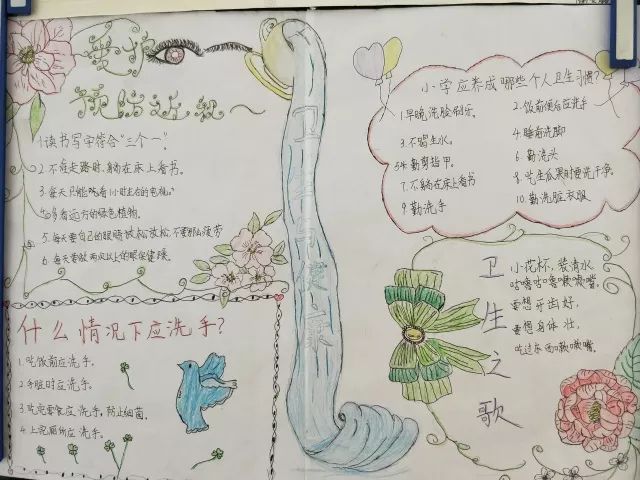 爱护
预防近视
1.读书写字符合"三个一"。
2.不在走路时、躺在床上看书。
3.每天只能吃看1小时左右的电视。
4.多看远方的绿色植物。
5.每天要自己的眼睛放松放松,不要那么疲劳
6.每天要做两次以上的眼保健操。
什么情况下应洗手?
1.吃饭前应洗手.
2.手脏时应洗手.
3.吃完零食应洗手,防止细菌.
4.上完厕所应洗手.
卫生与健康
小学应养成哪些个人卫生习惯?
1.早晚洗脸刷牙.
2.饭前便后应洗手
3.不喝生水。
4.睡前洗脚
5.勤剪指甲.
6.勤洗头
7.不躺在床上看书
8.吃生瓜果时要洗干净.
9.勤洗手
10.勤洗脏衣服
卫生之歌
小花杯,装清水
咕噜咕噜嗽嗽嘴,
要想牙齿好,
要想身体壮,
吃过东西嗽嗽嘴.